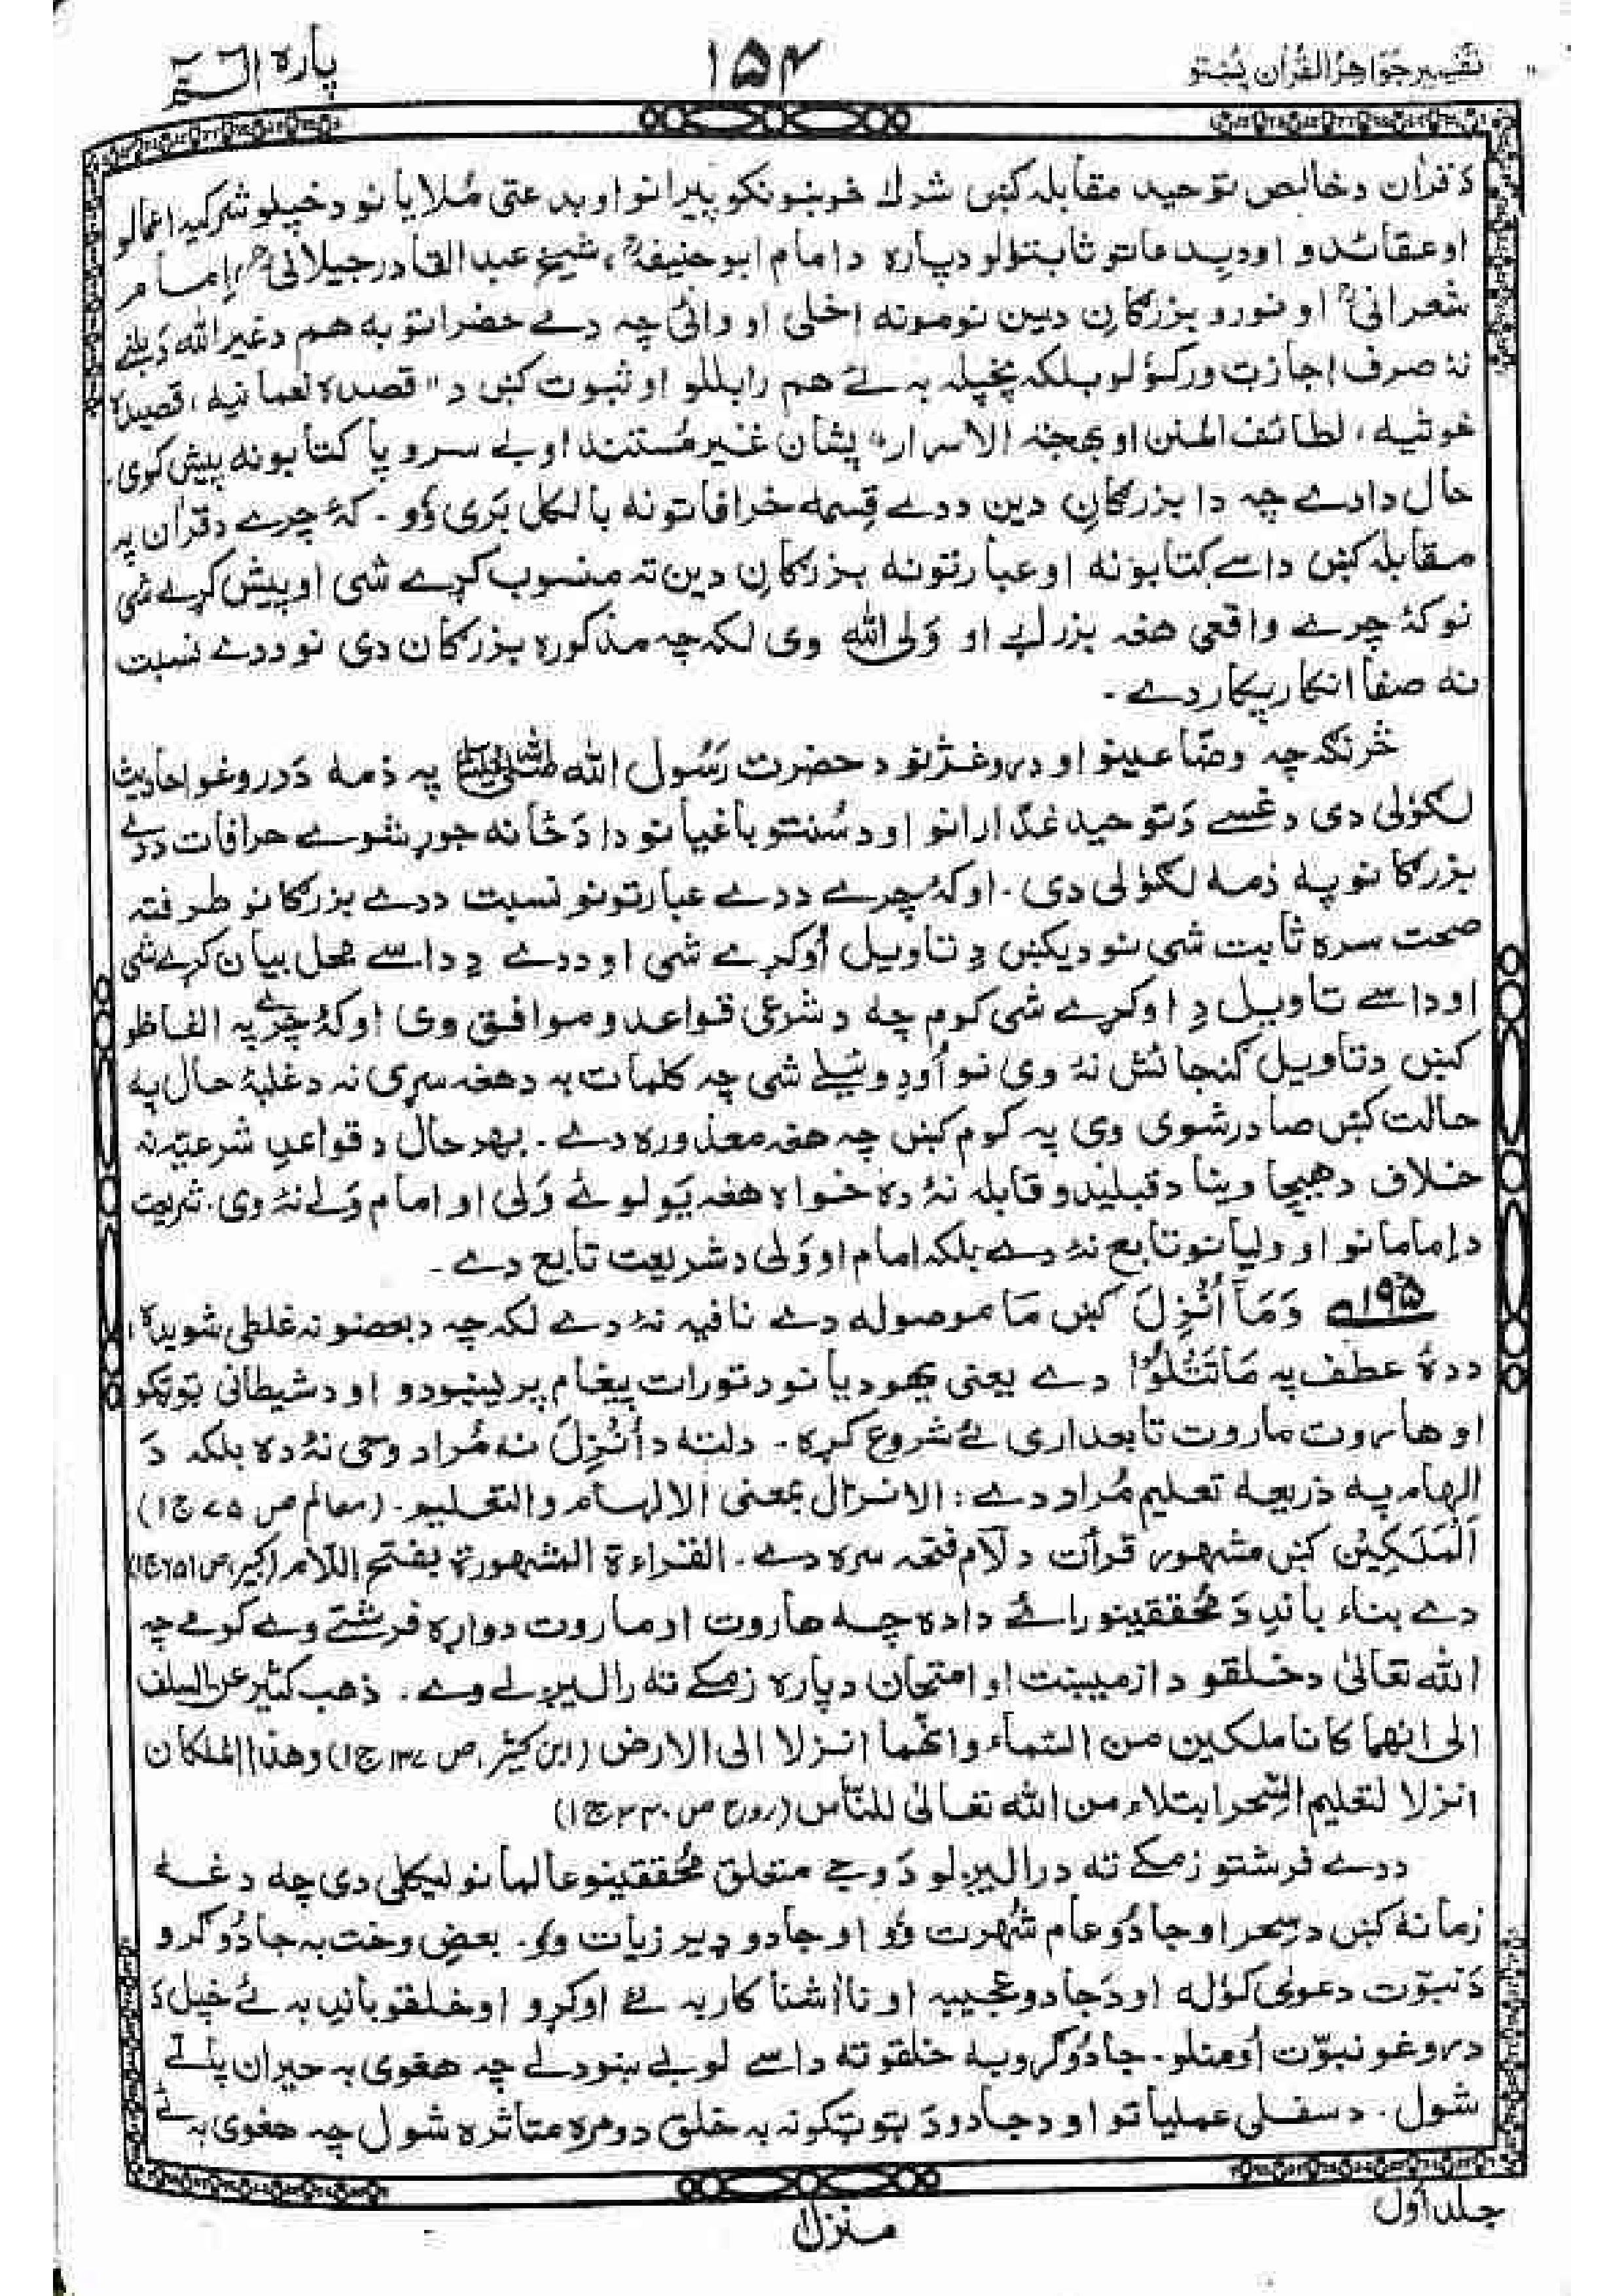 تفسیر جواهر القرآن پښتو
۱۵۴
پاره الۤمۤ
دَ قرآن د خالص توحید مقابله کښ شرك خوښونکو پیرانو او بدعتی مُلایانو د خپلو شرکیه اعمالو
او عقائدو او بدعاتو ثابتولو دپاره د امام ابوحنیفهؒ، شیخ عبدالقادر جیلانیؒ، امام
شعرانیؒ او نورو بزرگانِ دین نومونه اخلی او وائی چه دے حضراتو به هم د غیر الله دَ بللے
نهٔ صرف اجازت ورکوٗلو بلکه پخپله به ئے هم رابللو او ثبوت کښ د "قصده نعمانیه، قصیده
غوثیه، لطائف المنن او بهجة الاسرار" پشان غیر مُستند او بے سروپا کتابونه پیش کوی.
حال دادے چه دا بزرگانِ دین ددے قِسمه خرافاتونه بالکل بَری وُو. کهٔ چرے د قرآن په
مقابله کښ داسے کتابونه او عبارتونه بزرگانِ دین ته منسوب کړے شی او پیش کړے شی
نو کهٔ چرے واقعی هغه بزرك او وَلی الله وی لکه چه مذکوره بزرگان دی نو ددے نسبت
نه صفا انکار پکار دے.
څرنګه چه وضّاعینو او دروغژنو د حضرت رَسُول الله ﷺ په ذمه دَ دروغو احادیث
لګولی دی دغسے دَ توحید غدّارانو او د سُنتو باغیانو دا دَ ځانه جوړ شوے خرافات ددے
بزرگانو په ذمه لګولی دی. او کهٔ چرے ددے عبارتونو نسبت ددے بزرگانو طرفته
صحت سره ثابت شی نو دیکښ دِ تاویل اُوکړے شی او ددے دِ داسے محل بیان کړے شی
او داسے تاویل دِ اوکړے شی کوم چه د شرعی قواعدو موافق وی او کهٔ چرے په الفاظو
کښ د تاویل گنجائش نهٔ وی نو اُو دِ وئیلے شی چه کلمات به د هغه سړی نه د غلبهٔ حال په
حالت کښ صادر شوی وی په کوم کښ چه هغه معذوره دے. بهر حال د قواعدِ شرعیّه نه
خلاف د هیچا وینا د قبلیدو قابله نهٔ ده خواه هغه یو لوئے وَلی او امام وَلے نهٔ وی. شریعت
د اِمامانو او ولیانو تابع نهٔ دے بلکه امام او وَلی د شریعت تابع دے.
۱۹۵ وَمَآ اُنْزِلَ کښ مَا موصوله دے نافیه نهٔ دے لکه چه د بعضو نه غلطی شویده،
ددهٔ عطف په مَا تَتْلُوْا دے یعنی یهودیانو د تورات پیغام پریښودو او د شیطانی ټوټکو
او هاروت ماروت تابعداری ئے شروع کړه. دلته د اُنْزِلَ نه مُراد وحی نهٔ ده بلکه دَ
الهام په ذریعه تعلیم مُراد دے: الانزال بمعنی الالهام والتعلیم. (معالم ص ۷۵ ج۱)
اَلْمَلَكَيْنِ کښ مشهور قرأت د لام فتحه سره دے. القراءة المشهورة بفتح اللام (کبیر ص ۶۵۱ ج۱)
دے بناء باندِ دَ مُحققینو رائے داده چه هاروت او ماروت دواړه فرشتے وے کومے چه
الله تعالیٰ د خلقو د ازمیښت او امتحان دپاره زمکے ته رالیږلے وے. ذهب کثیر من السلف
الی انهما کانا ملکین من السماء وانّهما انزلا الی الارض (ابن کثیر، ص ۱۳۷ ج۱) وهذا الملکان
انزلا لتعلیم السّحر ابتلاء من الله تعالیٰ للنّاس (روح ص ۳۴۰ ج۱)
ددے فرشتو زمکے ته د رالیږلو دَ وجے متعلق مُحققینو عالمانو لیکلی دی چه دغے
زمانهٔ کښ د سِحر او جادُو عام شُهرت وُو او جادو ډیر زیات وُو. بعضِ وخت به جادُوگرو
دَ نبوّت دعوی کوله او دَ جادو عجیبه او نااشنا کار به ئے اوکړو او خلقو باندِ به ئے خپل دَ
دروغو نبوّت اُومنلو. جادُوگرو به خلقو ته داسے لوبے ښودلے چه هغوی به حیران پاتے
شول. د سفلی عملیاتو او د جادو دَ ټوټکو نه به خلق دومره متاثره شول چه هغوی به ئے
جلد اوّل
منزل